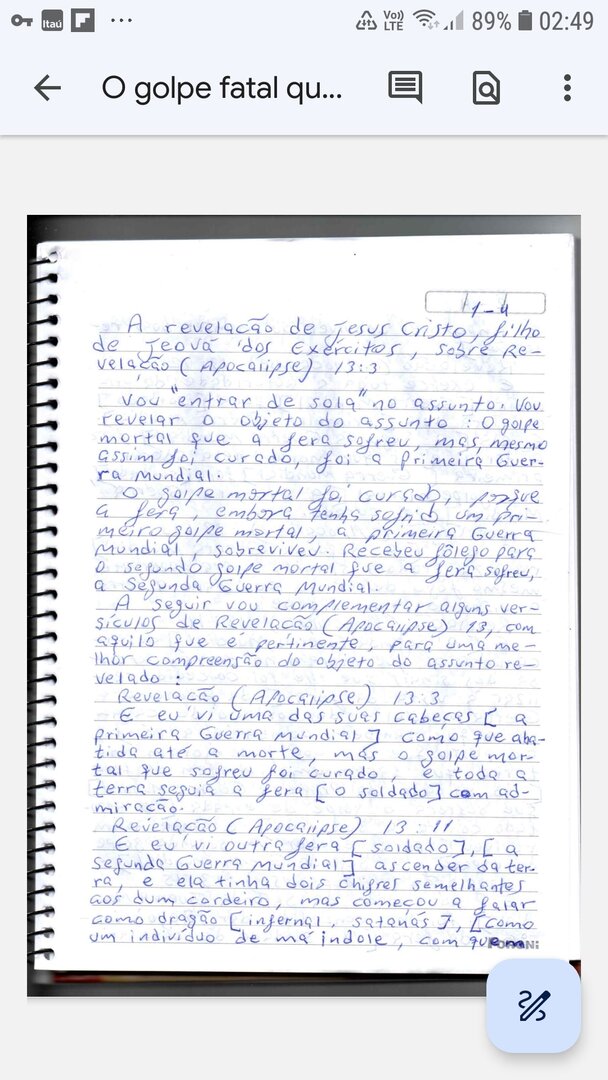 Itaú
Vo))
LTE
89%
02:49
O golpe fatal qu...
1-4
A revelação de Jesus Cristo, filho
de Jeová dos Exércitos, sobre Re-
velação (Apocalipse) 13:3
Vou "entrar de sola" no assunto. Vou
revelar o objeto do assunto: O golpe
mortal que a fera sofreu, mas, mesmo
assim foi curado, foi a Primeira Guer-
ra Mundial.
O golpe mortal foi curado, porque
a fera, embora tenha sofrido um pri-
meiro golpe mortal, a primeira Guerra
Mundial, sobreviveu. Recebeu fôlego para
o segundo golpe mortal que a fera sofreu,
a Segunda Guerra Mundial.
A seguir vou complementar alguns ver-
sículos de Revelação (Apocalipse) 13, com
aquilo que é pertinente, para uma me-
lhor compreensão do objeto do assunto re-
velado:
Revelação (Apocalipse) 13:3
E eu vi uma das suas cabeças [a
primeira Guerra Mundial] como que aba-
tida até a morte, mas o golpe mor-
tal que sofreu foi curado, e toda a
terra seguia a fera [o soldado] com ad-
miração.
Revelação (Apocalipse) 13:11
E eu vi outra fera [soldado], [a
segunda Guerra Mundial] ascender da ter-
ra, e ela tinha dois chifres semelhantes
aos dum cordeiro, mas começou a falar
como dragão [infernal, satanás], [como
um indivíduo de má índole, com quem